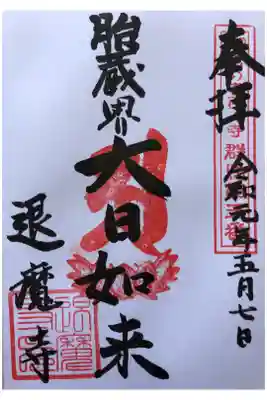 奉拝
令和元年五月七日
胎蔵界
大日如来
退魔寺